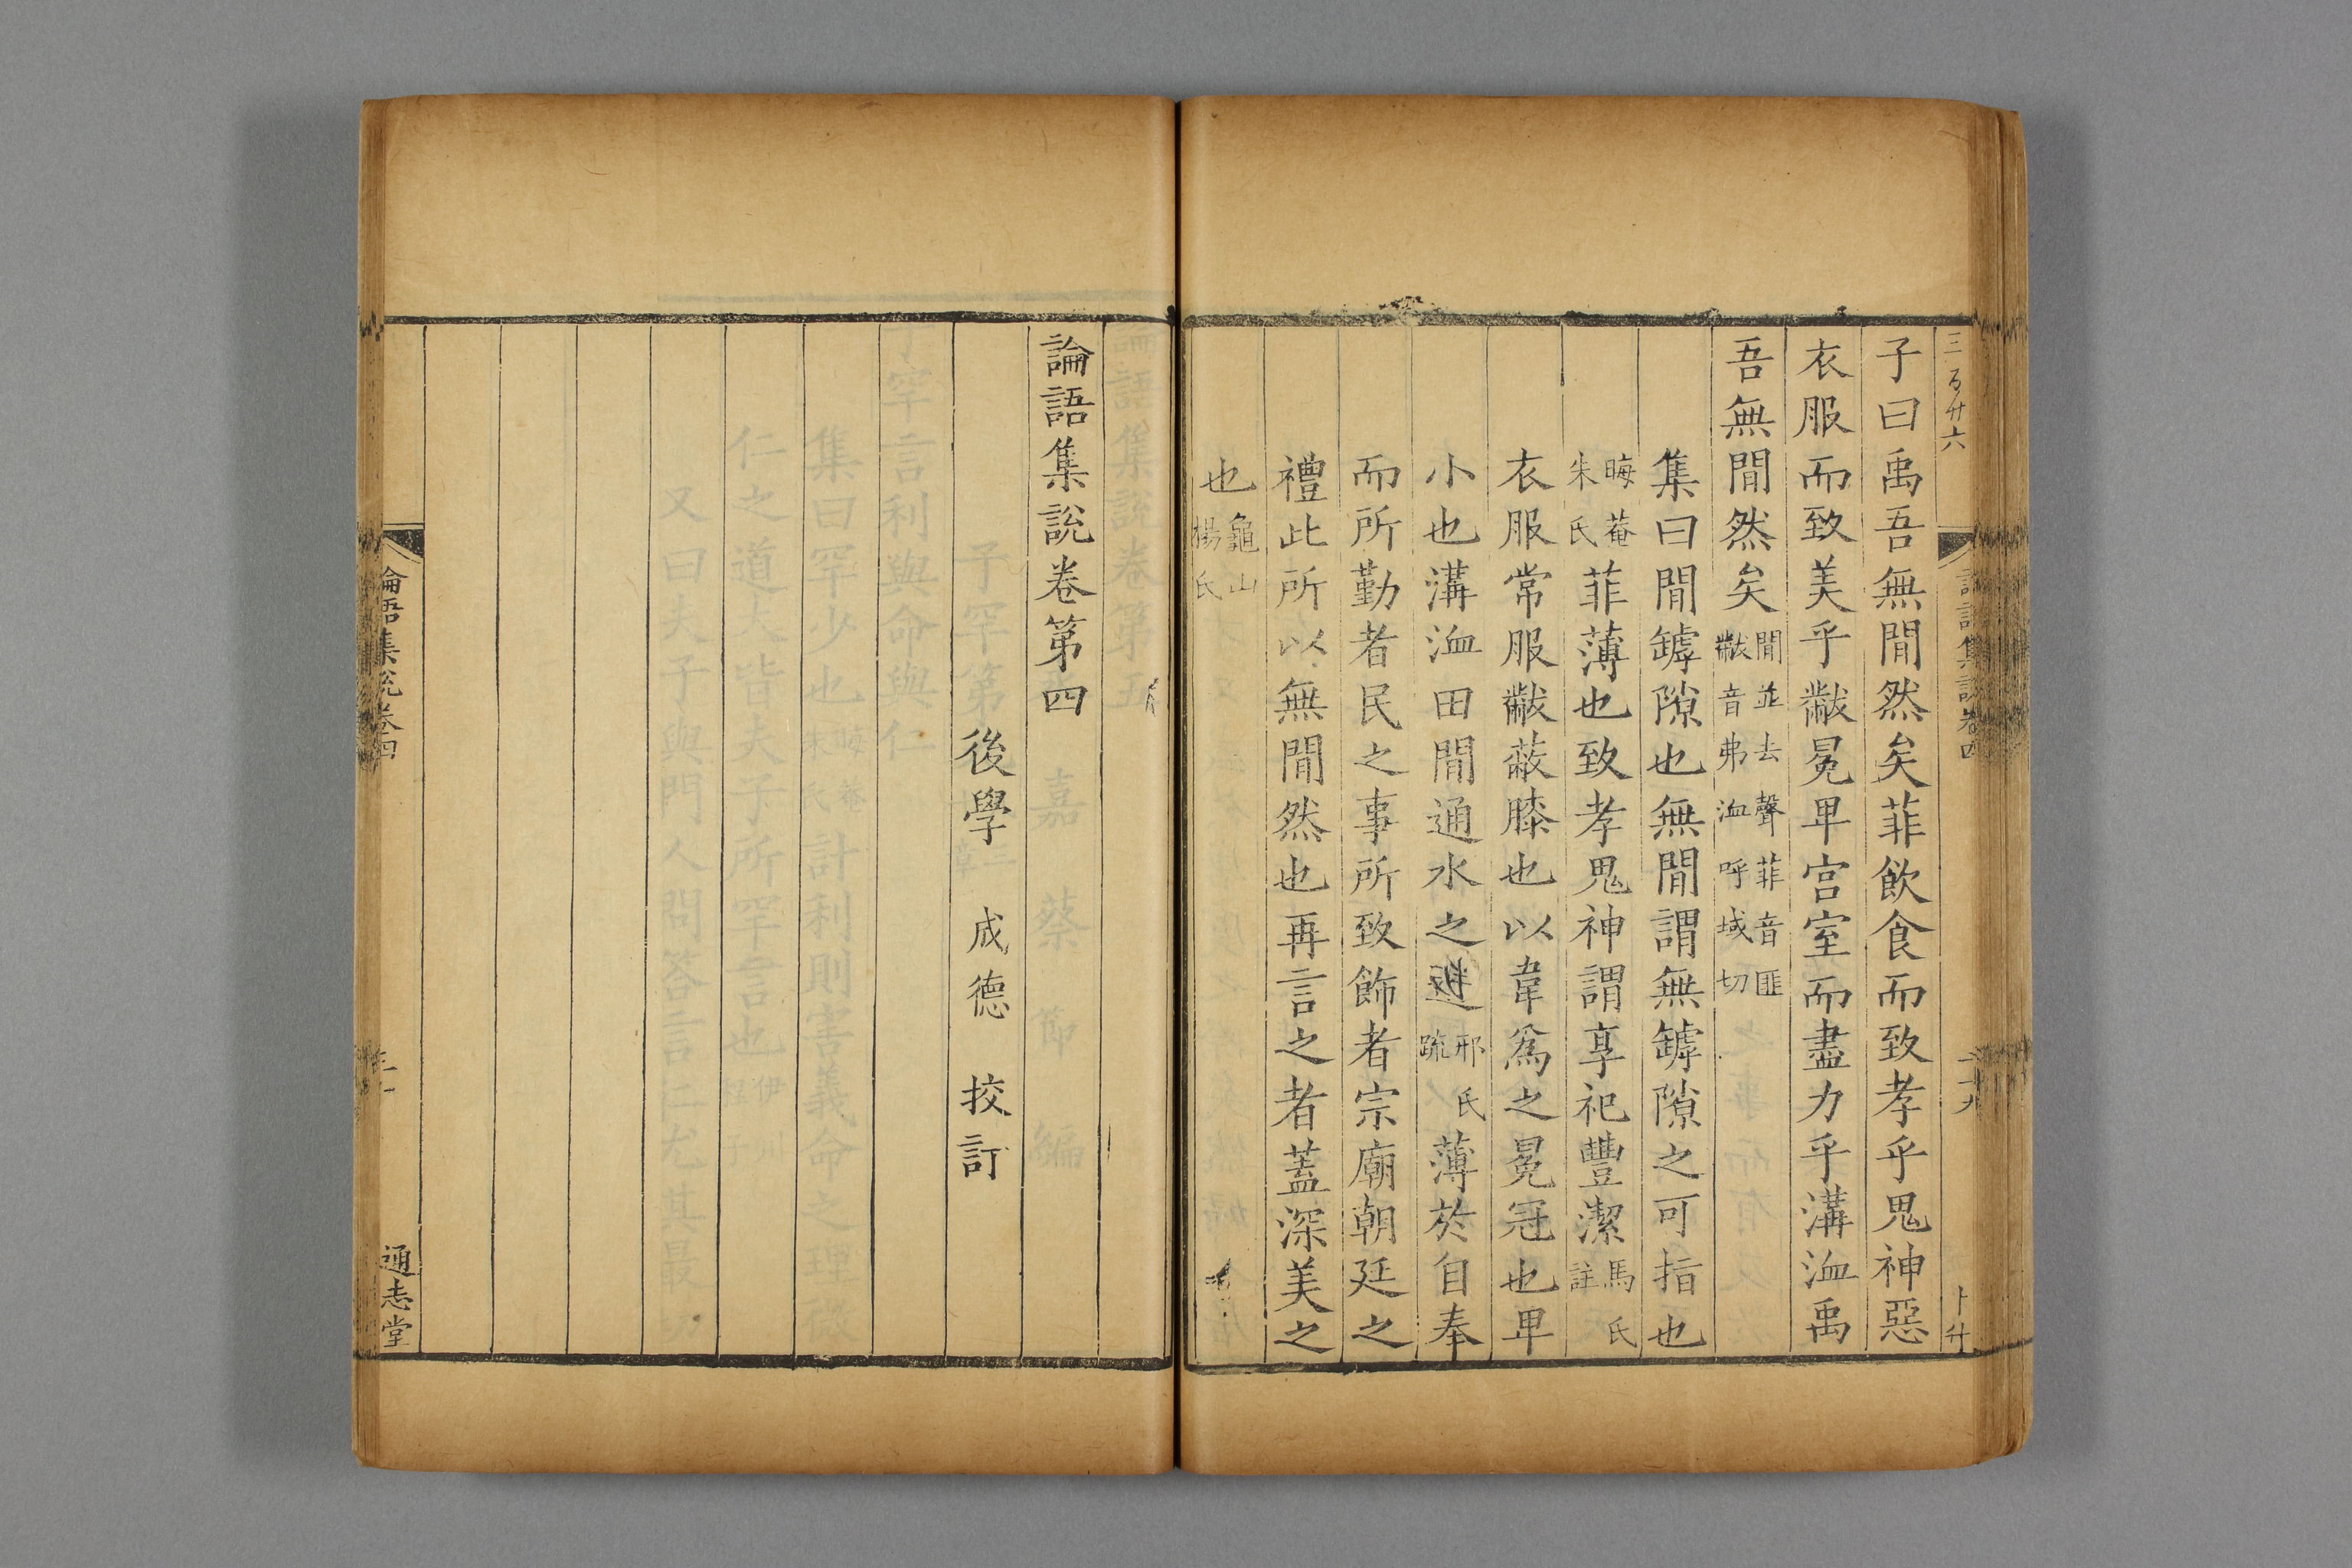 三百廿六
論語集說卷四
二十九
卜升
子曰禹吾無閒然矣菲飲食而致孝乎鬼神惡
衣服而致美乎黻冕卑宫室而盡力乎溝洫禹
吾無閒然矣閒並去聲菲音匪黻音弗洫呼域切
集曰閒罅隙也無閒謂無罅隙之可指也
晦菴朱氏菲薄也致孝鬼神謂享祀豐潔馬氏註
衣服常服黻蔽膝也以韋爲之冕冠也卑
小也溝洫田閒通水之邢氏疏薄於自奉
而所勤者民之事所致飾者宗廟朝廷之
禮此所以無閒然也再言之者蓋深美之
也龜山楊氏
論語集說卷第四
後學 成德 挍訂
論語集說卷四
通志堂